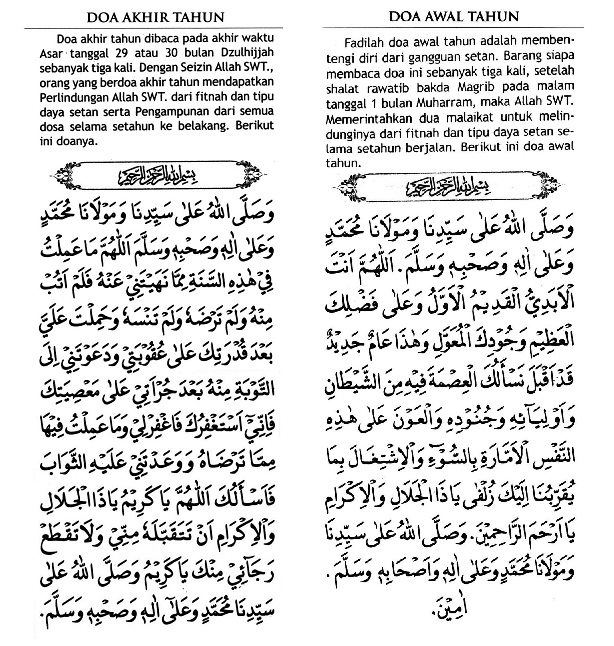 DOA AKHIR TAHUN
Doa akhir tahun dibaca pada akhir waktu
Asar tanggal 29 atau 30 bulan Dzulhijjah
sebanyak tiga kali. Dengan Seizin Allah SWT.,
orang yang berdoa akhir tahun mendapatkan
Perlindungan Allah SWT. dari fitnah dan tipu
daya setan serta Pengampunan dari semua
dosa selama setahun ke belakang. Berikut
ini doanya.
بِسْمِ اللهِ الرَّحْمٰنِ الرَّحِيْمِ
وَصَلَّى اللهُ عَلٰى سَيِّدِنَا وَمَوْلَانَا مُحَمَّدٍ
وَعَلٰى اٰلِهٖ وَصَحْبِهٖ وَسَلَّمَ اَللّٰهُمَّ مَا عَمِلْتُ
فِيْ هٰذِهِ السَّنَةِ مِمَّا نَهَيْتَنِيْ عَنْهُ فَلَمْ اَتُبْ
مِنْهُ وَلَمْ تَرْضَهُ وَلَمْ تَنْسَهُ وَحَمِلْتَ عَلَيَّ
بَعْدَ قُدْرَتِكَ عَلٰى عُقُوْبَتِيْ وَدَعَوْتَنِيْ اِلَى
التَّوْبَةِ مِنْهُ بَعْدَ جُرْأَتِيْ عَلٰى مَعْصِيَتِكَ
فَاِنِّيْ اَسْتَغْفِرُكَ فَاغْفِرْلِيْ وَمَا عَمِلْتُ فِيْهَا
مِمَّا تَرْضَاهُ وَوَعَدْتَنِيْ عَلَيْهِ الثَّوَابَ
فَاَسْأَلُكَ اللّٰهُمَّ يَا كَرِيْمُ يَا ذَا الْجَلَالِ
وَالْاِكْرَامِ اَنْ تَتَقَبَّلَهُ مِنِّيْ وَلَا تَقْطَعْ
رَجَائِيْ مِنْكَ يَا كَرِيْمُ وَصَلَّى اللهُ عَلٰى
سَيِّدِنَا مُحَمَّدٍ وَعَلٰى اٰلِهٖ وَصَحْبِهٖ وَسَلَّمَ.
DOA AWAL TAHUN
Fadilah doa awal tahun adalah memben-
tengi diri dari gangguan setan. Barang siapa
membaca doa ini sebanyak tiga kali, setelah
shalat rawatib bakda Magrib pada malam
tanggal 1 bulan Muharram, maka Allah SWT.
Memerintahkan dua malaikat untuk melin-
dunginya dari fitnah dan tipu daya setan se-
lama setahun berjalan. Berikut ini doa awal
tahun.
بِسْمِ اللهِ الرَّحْمٰنِ الرَّحِيْمِ
وَصَلَّى اللهُ عَلٰى سَيِّدِنَا وَمَوْلَانَا مُحَمَّدٍ
وَعَلٰى اٰلِهٖ وَصَحْبِهٖ وَسَلَّمَ. اَللّٰهُمَّ اَنْتَ
الْاَبَدِيُّ الْقَدِيْمُ الْاَوَّلُ وَعَلٰى فَضْلِكَ
الْعَظِيْمِ وَجُوْدِكَ الْمُعَوَّلِ وَهٰذَا عَامٌ جَدِيْدٌ
قَدْ اَقْبَلَ نَسْأَلُكَ الْعِصْمَةَ فِيْهِ مِنَ الشَّيْطَانِ
وَاَوْلِيَائِهٖ وَجُنُوْدِهٖ وَالْعَوْنَ عَلٰى هٰذِهِ
النَّفْسِ الْاَمَّارَةِ بِالسُّوْءِ وَالْاِشْتِغَالَ بِمَا
يُقَرِّبُنَا اِلَيْكَ زُلْفٰى يَا ذَا الْجَلَالِ وَالْاِكْرَامِ
يَا اَرْحَمَ الرَّاحِمِيْنَ. وَصَلَّى اللهُ عَلٰى سَيِّدِنَا
وَمَوْلَانَا مُحَمَّدٍ وَعَلٰى اٰلِهٖ وَاَصْحَابِهٖ وَسَلَّمَ.
اٰمِيْنَ.